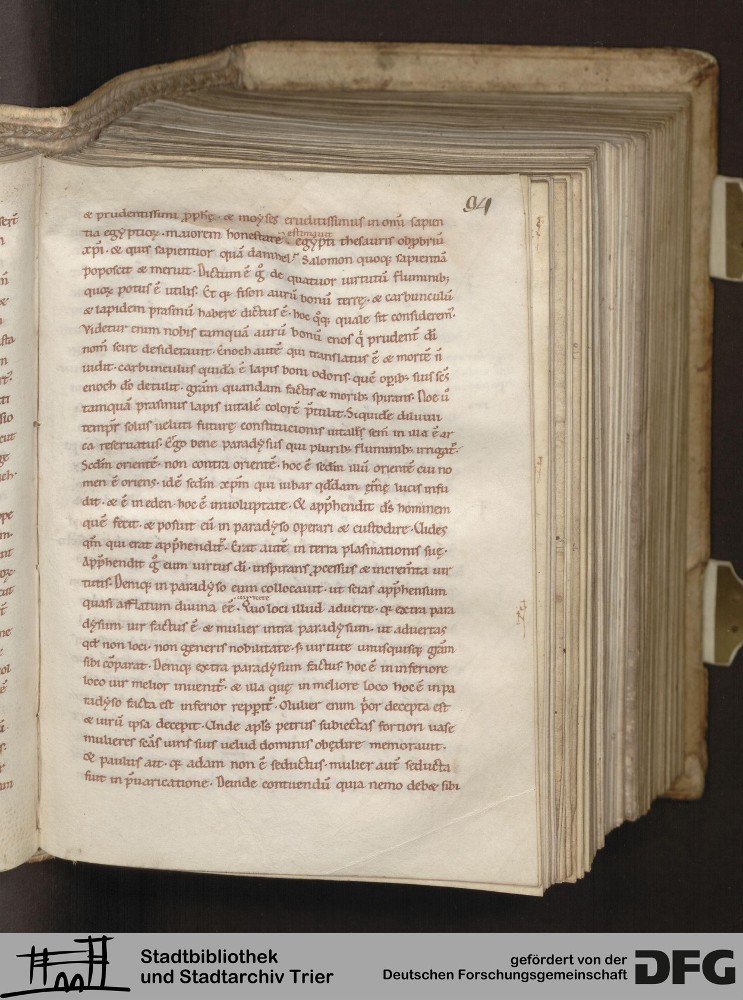 94
& prudentissimi ꝓph̅ę · & moyses eruditissimus in om̅i sapien
tia egyptioꝝ · maiorem honestatē estimauit egypti thesauris obprium
xp̅i · & quis sapientior quā danihel · Salomon quoqꝫ sapientiā
poposcit & meruit · Dictum ē g̊ de quatuor uirtutū fluminibꝫ
quoꝝ potus ē utilis · Et qꝛ fison aurū bonū terrę · & carbunculū
& lapidem prasinū habere dictus ē · hoc qꝫqꝫ quale sit consideremꝰ ·
Videtur enim nobis tamquā aurū bonū enos q̇ prudent̅ di̅
nom̅ scire desiderauit · Enoch autē qui translatus ē & mortē n̅
uidit · carbunculus quidā ē lapis boni odoris · quē opibꝫ suis sc̅s
enoch do̅ detulit · gram̅ quandam factis & moribꝫ spirans · Noe ū
tamquā prasinus lapis uitalē colorē p̅tulit · Siquidē diluuii
tempr̅ solus ueluti futurę constitutionis uitalis sem̅ in illa ē ar
ca reseruatus · Ergo bene paradysus qui pluribꝫ fluminibꝫ irrigat̅ ·
Scd̅m orientē · non contra orientē · hoc ē scd̅m illū orientē cui no
men ē oriens · idē scd̅m xp̅m qui iubar qd̅dam et̅nę lucis infu
dit · & ē in eden · hoc ē in uoluptate · & app̅hendit ds̅ hominem
quē fecit · & posuit eū in paradyso operari & custodire · Uides
qm̅ qui erat app̅hendit̅ · Erat autē in terra plasmationis suę ·
App̅hendit g̊ eum uirtus di̅ · inspirans ꝓcessus & incrementa uir
tutis · Deniqꝫ in paradyso eum collocauit · ut scias app̅hensum
quasi afflatum diuina et̅ uirtute · Quo loci illud aduerte · qꝛ extra para
dysum uir factus ē · & mulier intra paradysum · ut aduertas
qd̅ non loci · non generis nobilitate · s; uirtute unusquisqꝫ gram̅
sibi cōparat · Deniqꝫ extra paradysum factus hoc ē in inferiore
loco uir melior inuenit̅ · & illa quę in meliore loco hoc ē in pa
radyso facta est inferior repp̅it̅ · Mulier enim p̅or decepta est
& uirū ipsa decepit · Unde apl̅s petrus subiectas fortiori uase
mulieres sc̅as uiris suis uelud dominis obędire memorauit ·
& paulus ait · qꝛ adam non ē seductus · mulier aut̅ seducta
fuit in p̅uaricatione · Deinde contuendū quia nemo deb& sibi
Stadtbibliothek
und Stadtarchiv Trier
gefördert von der
Deutschen Forschungsgemeinschaft
DFG